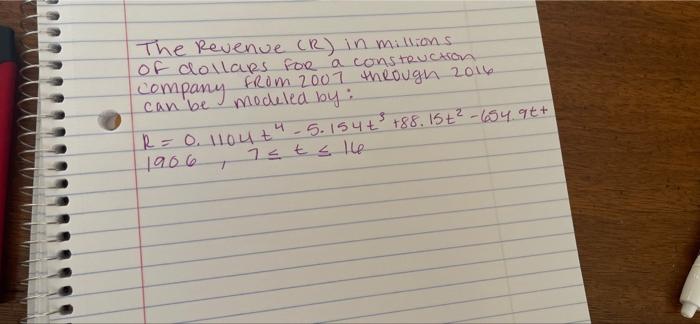 The Revenue (R) in millions
of dollars for a construction
company from 2007 through 2016
can be modeled by:
R = 0.1104t⁴ - 5.154t³ + 88.15t² - 654.9t +
1906 , 7 ≤ t ≤ 16